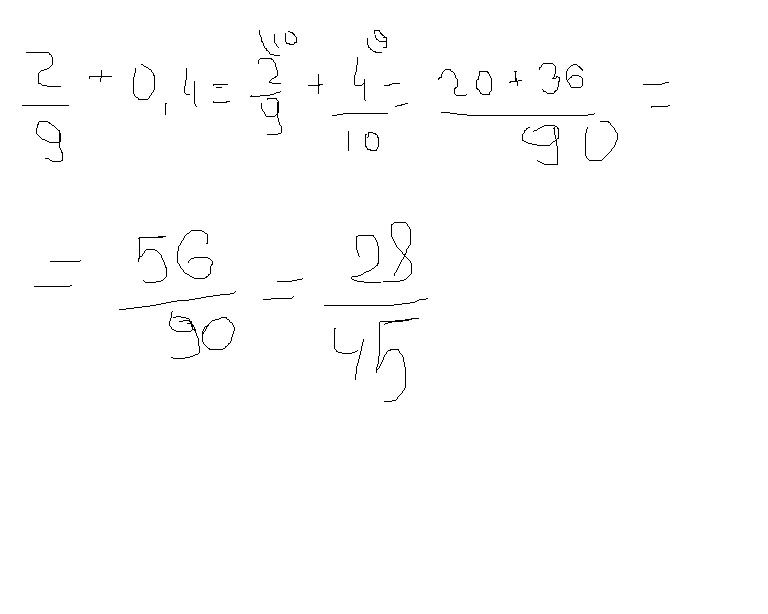 2/9 + 0,4 = 2\10/9 + 4\9/10 = 20+36/90 =
= 56/90 = 28/45